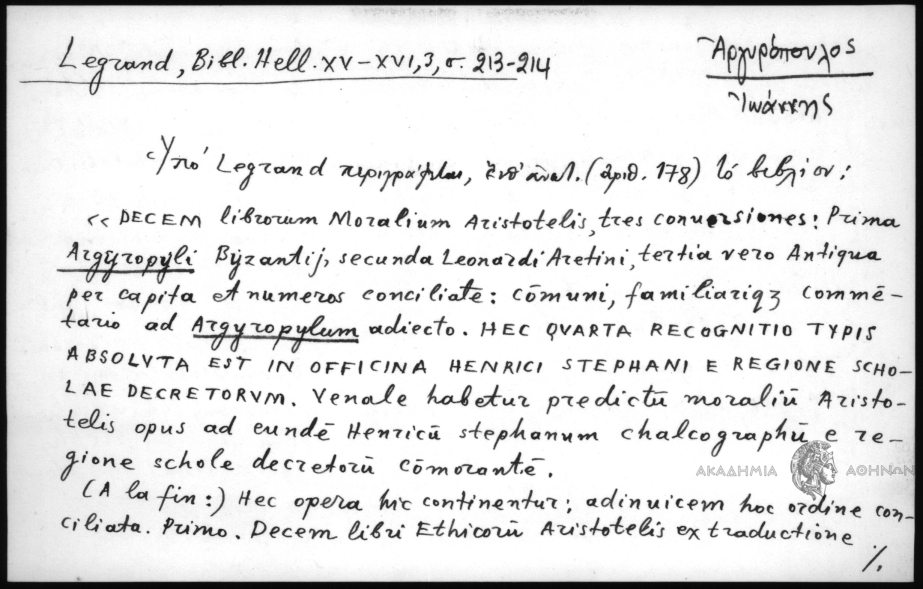 Legrand, Bibl. Hell. XV-XVI, 3, σ. 213-214
Ἀργυρόπουλος
Ἰωάννης
Ὑπό Legrand περιγράφεται, ἐνθ' ἀνωτ. (ἀριθ. 178) τό βιβλίον:
«DECEM librorum Moralium Aristotelis, tres conuersiones: Prima
Argyropyli Byzantij, secunda Leonardi Aretini, tertia vero Antiqua
per capita et numeros conciliate: cōmuni, familiariqȝ commē-
tario ad Argyropylum adiecto. HEC QVARTA RECOGNITIO TYPIS
ABSOLVTA EST IN OFFICINA HENRICI STEPHANI E REGIONE SCHO-
LAE DECRETORVM. Venale habetur predictū moraliū Aristo-
telis opus ad eundē Henricū stephanum chalcographū e re-
gione schole decretorū cōmorantē.
(A la fin:) Hec opera hic continentur; adinuicem hoc ordine con-
ciliata. Primo. Decem libri Ethicorū Aristotelis ex traductione
./.
ΑΚΑΔΗΜΙΑ ΑΘΗΝΩΝ